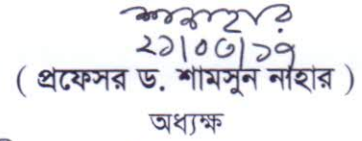 ২১|০৩|১৭
( প্রফেসর ড. শামসুন নাহার )
অধ্যক্ষ